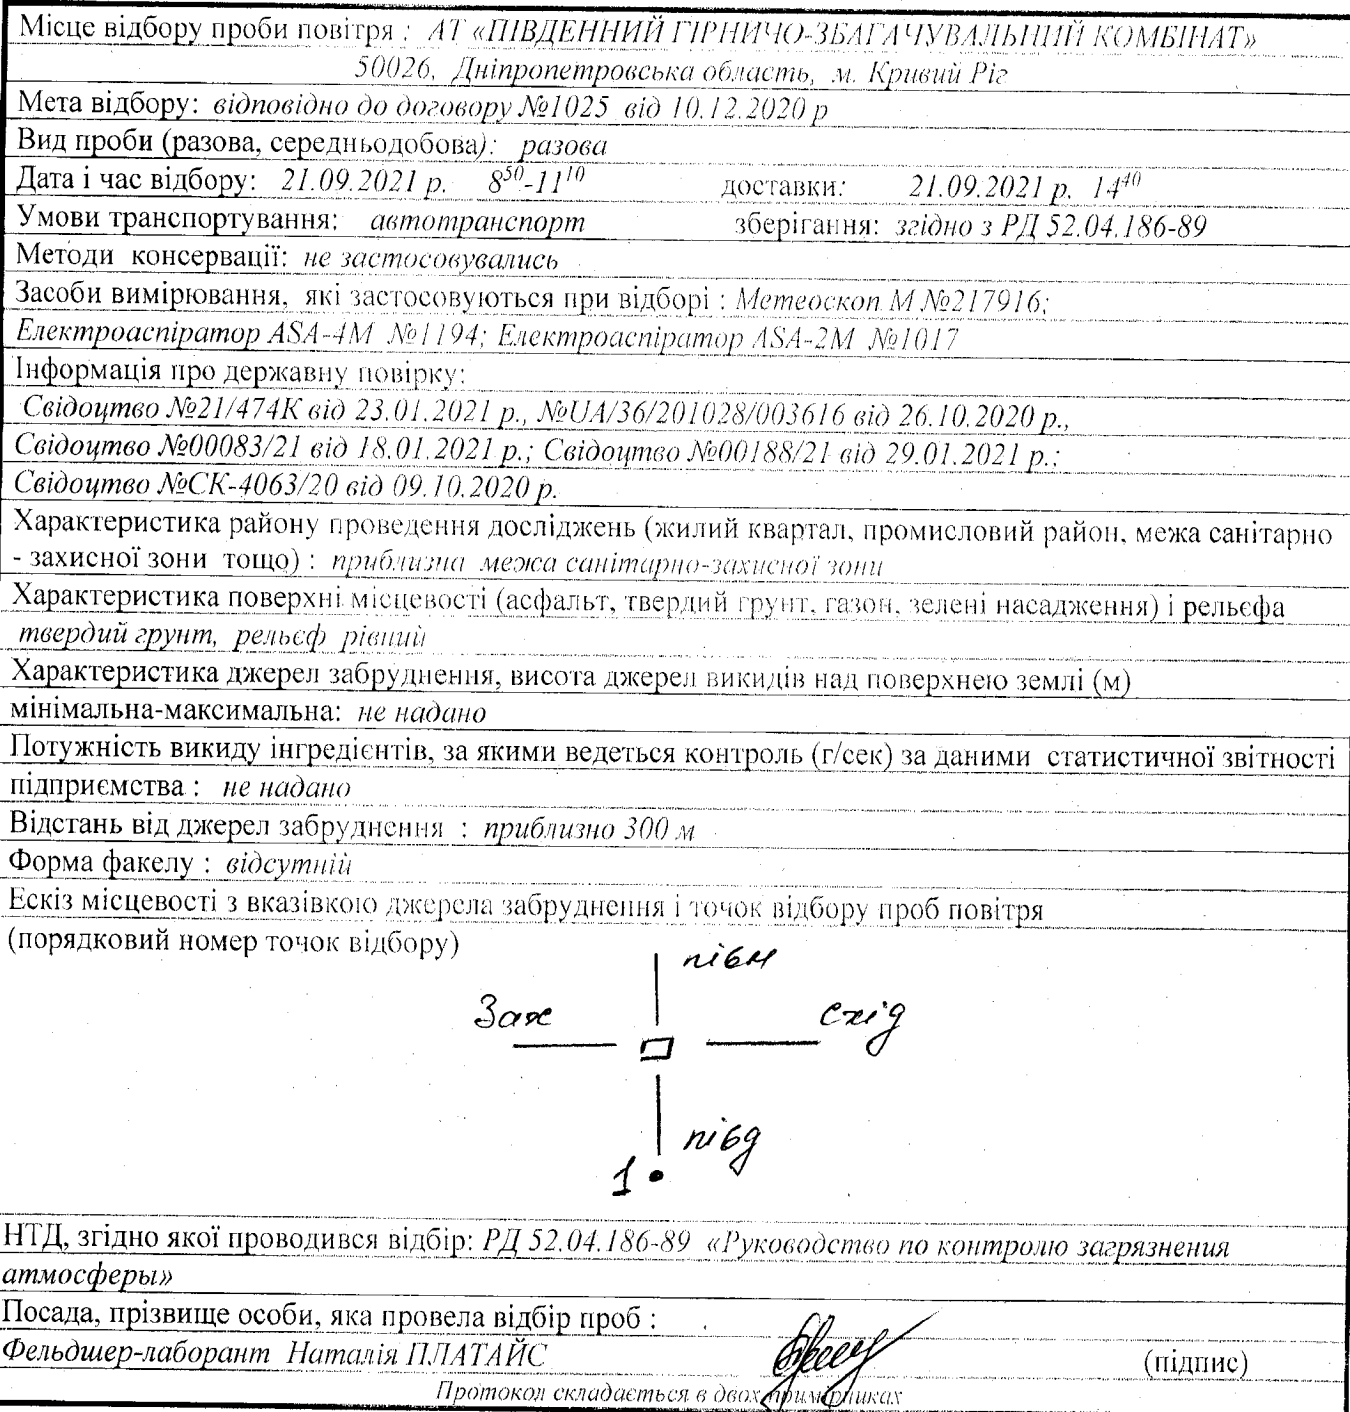 Місце відбору проби повітря : АТ «ПІВДЕННИЙ ГІРНИЧО-ЗБАГАЧУВАЛЬНИЙ КОМБІНАТ»
50026, Дніпропетровська область, м. Кривий Ріг
Мета відбору: відповідно до договору №1025 від 10.12.2020 р
Вид проби (разова, середньодобова): разова
Дата і час відбору: 21.09.2021 р. 8⁵⁰-11¹⁰ доставки: 21.09.2021 р. 14⁴⁰
Умови транспортування: автотранспорт зберігання: згідно з РД 52.04.186-89
Методи консервації: не застосовувались
Засоби вимірювання, які застосовуються при відборі : Метеоскоп М №217916;
Електроаспіратор ASA-4M №1194; Електроаспіратор ASA-2M №1017
Інформація про державну повірку:
Свідоцтво №21/474К від 23.01.2021 р., №UA/36/201028/003616 від 26.10.2020 р.,
Свідоцтво №00083/21 від 18.01.2021 р.; Свідоцтво №00188/21 від 29.01.2021 р.;
Свідоцтво №СК-4063/20 від 09.10.2020 р.
Характеристика району проведення досліджень (жилий квартал, промисловий район, межа санітарно
- захисної зони тощо) : приблизна межа санітарно-захисної зони
Характеристика поверхні місцевості (асфальт, твердий грунт, газон, зелені насадження) і рельєфа
твердий грунт, рельєф рівний
Характеристика джерел забруднення, висота джерел викидів над поверхнею землі (м)
мінімальна-максимальна: не надано
Потужність викиду інгредієнтів, за якими ведеться контроль (г/сек) за даними статистичної звітності
підприємства : не надано
Відстань від джерел забруднення : приблизно 300 м
Форма факелу : відсутній
Ескіз місцевості з вказівкою джерела забруднення і точок відбору проб повітря
(порядковий номер точок відбору)
півн
Зах Схід
півд
1
НТД, згідно якої проводився відбір: РД 52.04.186-89 «Руководство по контролю загрязнения
атмосферы»
Посада, прізвище особи, яка провела відбір проб :
Фельдшер-лаборант Наталія ПЛАТАЙС (підпис)
Протокол складається в двох примірниках